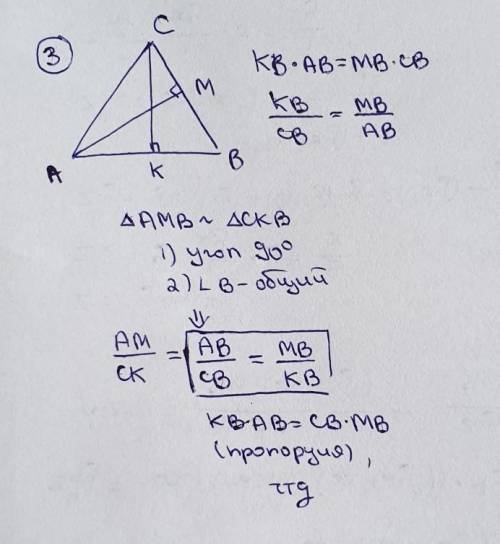 3
C
M
A
K
B
KB · AB = MB · CB
KB/CB = MB/AB
△AMB ~ △CKB
1) угол 90°
2) ∠B - общий
⇓
AM/CK = AB/CB = MB/KB
KB·AB = CB·MB
(пропорция),
чтд